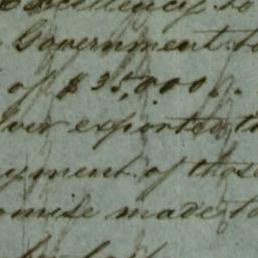 Excellency to
Government to
of $35,000.
ever exported th
yment of those
omise made to